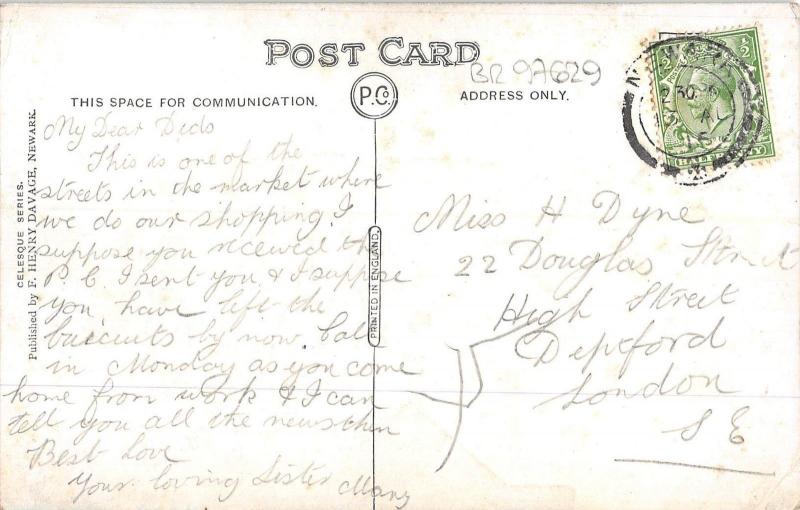 POST CARD
BR 97629
P.C.
THIS SPACE FOR COMMUNICATION.
ADDRESS ONLY.
CELESQUE SERIES.
Published by F. HENRY DAVAGE, NEWARK.
PRINTED IN ENGLAND.
My Dear Dids
This is one of the
streets in the market where
we do our shopping. I
suppose you received the
P.C. I sent you & I suppose
you have left the
by now Call
in Monday as you come
home from work & I can
tell you all the news then
Best Love
Your loving Sister Mary
Miss H Dyne
22 Douglas Street
High Street
Deptford
London
S E
NEWARK
2 30 P
A
15
HALFPENNY